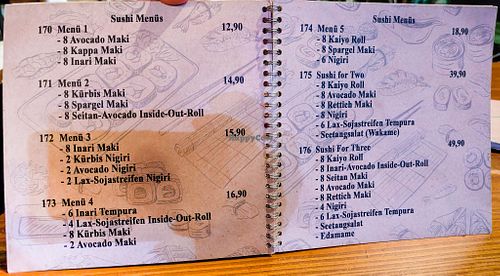 Sushi Menüs
170 Menü 1 12,90
- 8 Avocado Maki
- 8 Kappa Maki
- 8 Inari Maki
171 Menü 2 14,90
- 8 Kürbis Maki
- 8 Spargel Maki
- 8 Seitan-Avocado Inside-Out-Roll
172 Menü 3 15,90
- 8 Inari Maki
- 2 Kürbis Nigiri
- 2 Avocado Nigiri
- 2 Lax-Sojastreifen Nigiri
173 Menü 4 16,90
- 6 Inari Tempura
- 4 Lax-Sojastreifen Inside-Out-Roll
- 8 Kürbis Maki
- 2 Avocado Maki
Sushi Menüs
174 Menü 5 18,90
- 8 Kaiyo Roll
- 8 Spargel Maki
- 6 Nigiri
175 Sushi for Two 39,90
- 8 Kaiyo Roll
- 8 Avocado Maki
- 8 Rettich Maki
- 8 Nigiri
- 6 Lax-Sojastreifen Tempura
- Seetangsalat (Wakame)
176 Sushi For Three 49,90
- 8 Kaiyo Roll
- 8 Inari-Avocado Inside-Out-Roll
- 8 Seitan Maki
- 8 Avocado Maki
- 8 Rettich Maki
- 4 Nigiri
- 6 Lax-Sojastreifen Tempura
- Seetangsalat
- Edamame
HappyCow